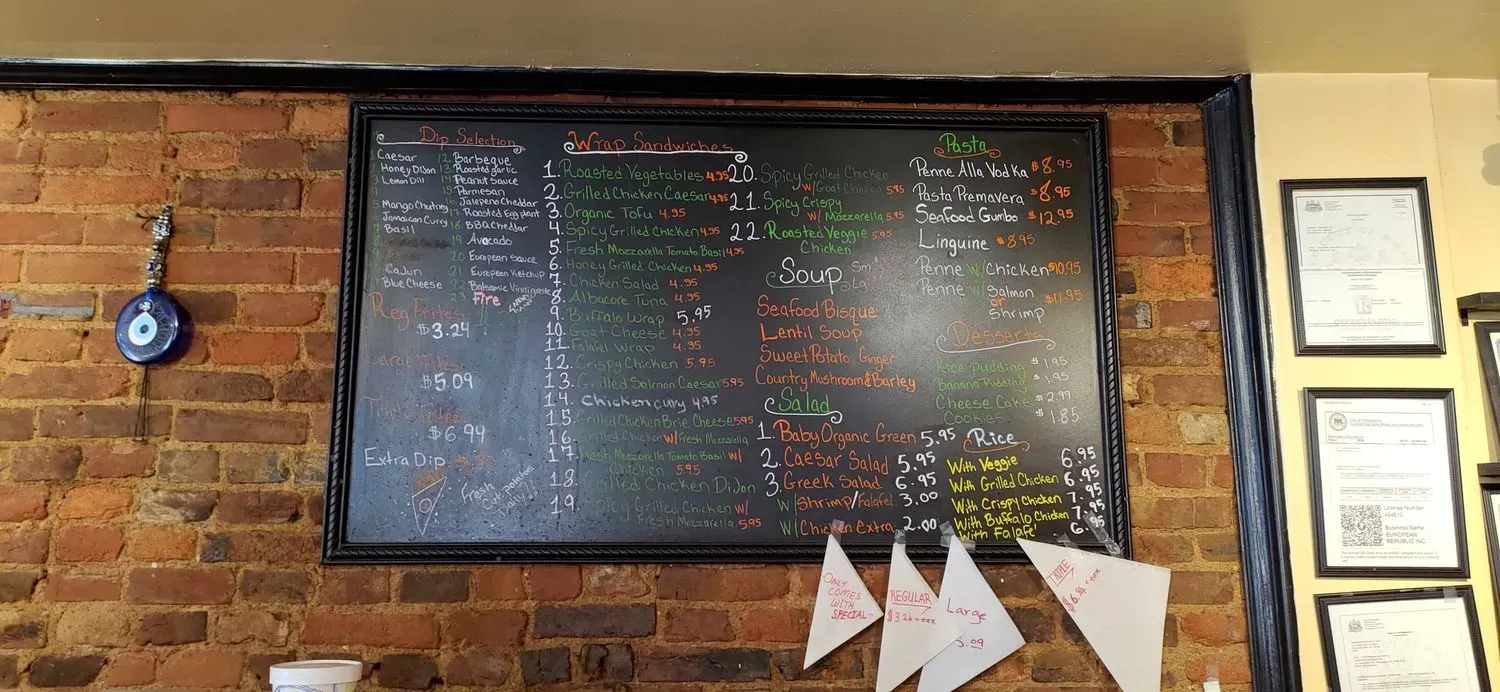 Dip Selection
Caesar
Honey Dijon
Lemon Dill
Mango Chutney
Jamaican Curry
Basil
Cajun
Blue Cheese
12 Barbeque
13 Roasted garlic
14 Peanut Sauce
15 Parmesan
16 Jalepeno Cheddar
17 Roasted Eggplant
18 BBQ Cheddar
19 Avocado
20 European Sauce
21 European Ketchup
22 Balsamic Vinaigrette
23 Fire
Reg Frites
$3.24
Large Frites
$5.09
$6.94
Extra Dip
Fresh
Cut potatoes
Daily
Wrap Sandwiches
1. Roasted Vegetables 4.95
2. Grilled Chicken Caesar 4.95
3. Organic Tofu 4.95
4. Spicy Grilled Chicken 4.95
5. Fresh Mozzarella Tomato Basil 4.95
6. Honey Grilled Chicken 4.95
7. Chicken Salad 4.95
8. Albacore Tuna 4.95
9. Buffalo Wrap 5.95
10. Goat Cheese 4.95
11. Falafel Wrap 4.95
12. Crispy Chicken 5.95
13. Grilled Salmon Caesar 5.95
14. Chicken Curry 4.95
15. Grilled Chicken Brie Cheese 5.95
16. Grilled Chicken w/ Fresh Mozzarella
17. Fresh Mozzarella Tomato Basil w/
Chicken 5.95
18. Grilled Chicken Dijon
19. Spicy Grilled Chicken w/
Fresh Mozzarella 5.95
20. Spicy Grilled Chicken
w/ Goat 5.95
21. Spicy Crispy
w/ Mozzarella 5.95
22. Roasted Veggie 5.95
Chicken
Soup
Seafood Bisque
Lentil Soup
Sweet Potato Ginger
Country Mushroom & Barley
Salad
1. Baby Organic Green 5.95
2. Caesar Salad 5.95
3. Greek Salad 6.95
w/ Shrimp/Falafel 3.00
w/ Chicken Extra 2.00
Pasta
Penne Alla Vodka $8.95
Pasta Premavera $8.95
Seafood Gumbo $12.95
Linguine $8.95
Penne w/ Chicken $10.95
Penne w/ Salmon
or $11.95
Shrimp
Desserts
Rice pudding $1.95
Banana Pudding $1.95
Cheese Cake $2.99
Cookies $1.85
Rice
With Veggie 6.95
With Grilled Chicken 6.95
With Crispy Chicken 7.95
With Buffalo Chicken 7.95
With Falafel 6.95
ONLY
COMES
WITH
SPECIAL...
REGULAR
$3.24 + tax
Large
5.09
TRIPLE
$6.94 + tax
License Number
Business Name
EUROPEAN
REPUBLIC INC